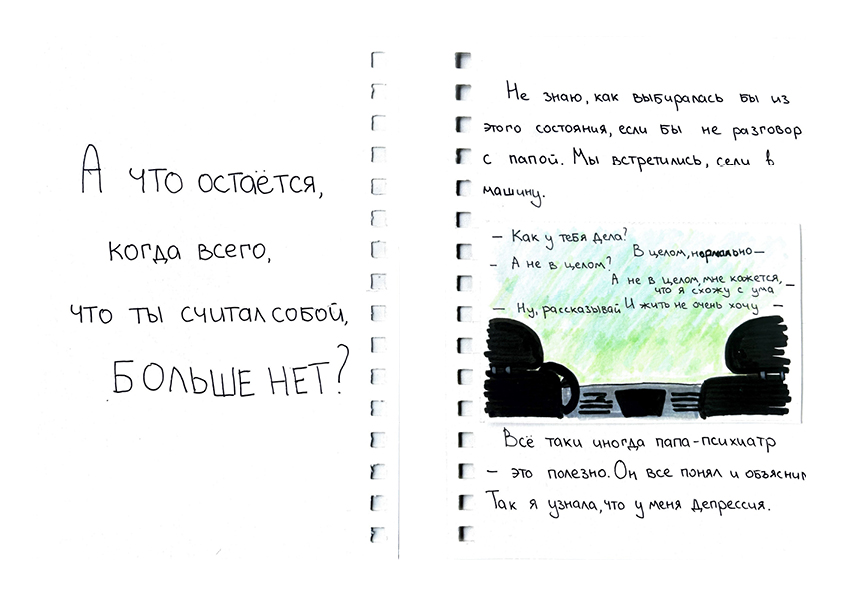 А что остаётся,
когда всего,
что ты считал собой,
БОЛЬШЕ НЕТ?
Не знаю, как выбиралась бы из
этого состояния, если бы не разговор
с папой. Мы встретились, сели в
машину.
— Как у тебя дела?
В целом, нормально —
- А не в целом?
А не в целом, мне кажется, —
что я схожу с ума
И жить не очень хочу —
— Ну, рассказывай
Всё таки иногда папа-психиатр
— это полезно. Он все понял и объяснил
Так я узнала, что у меня депрессия.